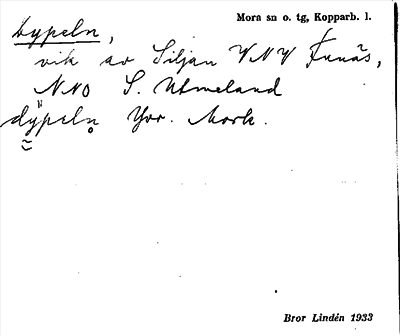 Mora sn o. tg, Kopparb. l.
Dypeln,
vik av Siljan VNV Funäs,
NNO S. Utmeland
dypeln Yvr. Mork.
Bror Lindén 1933